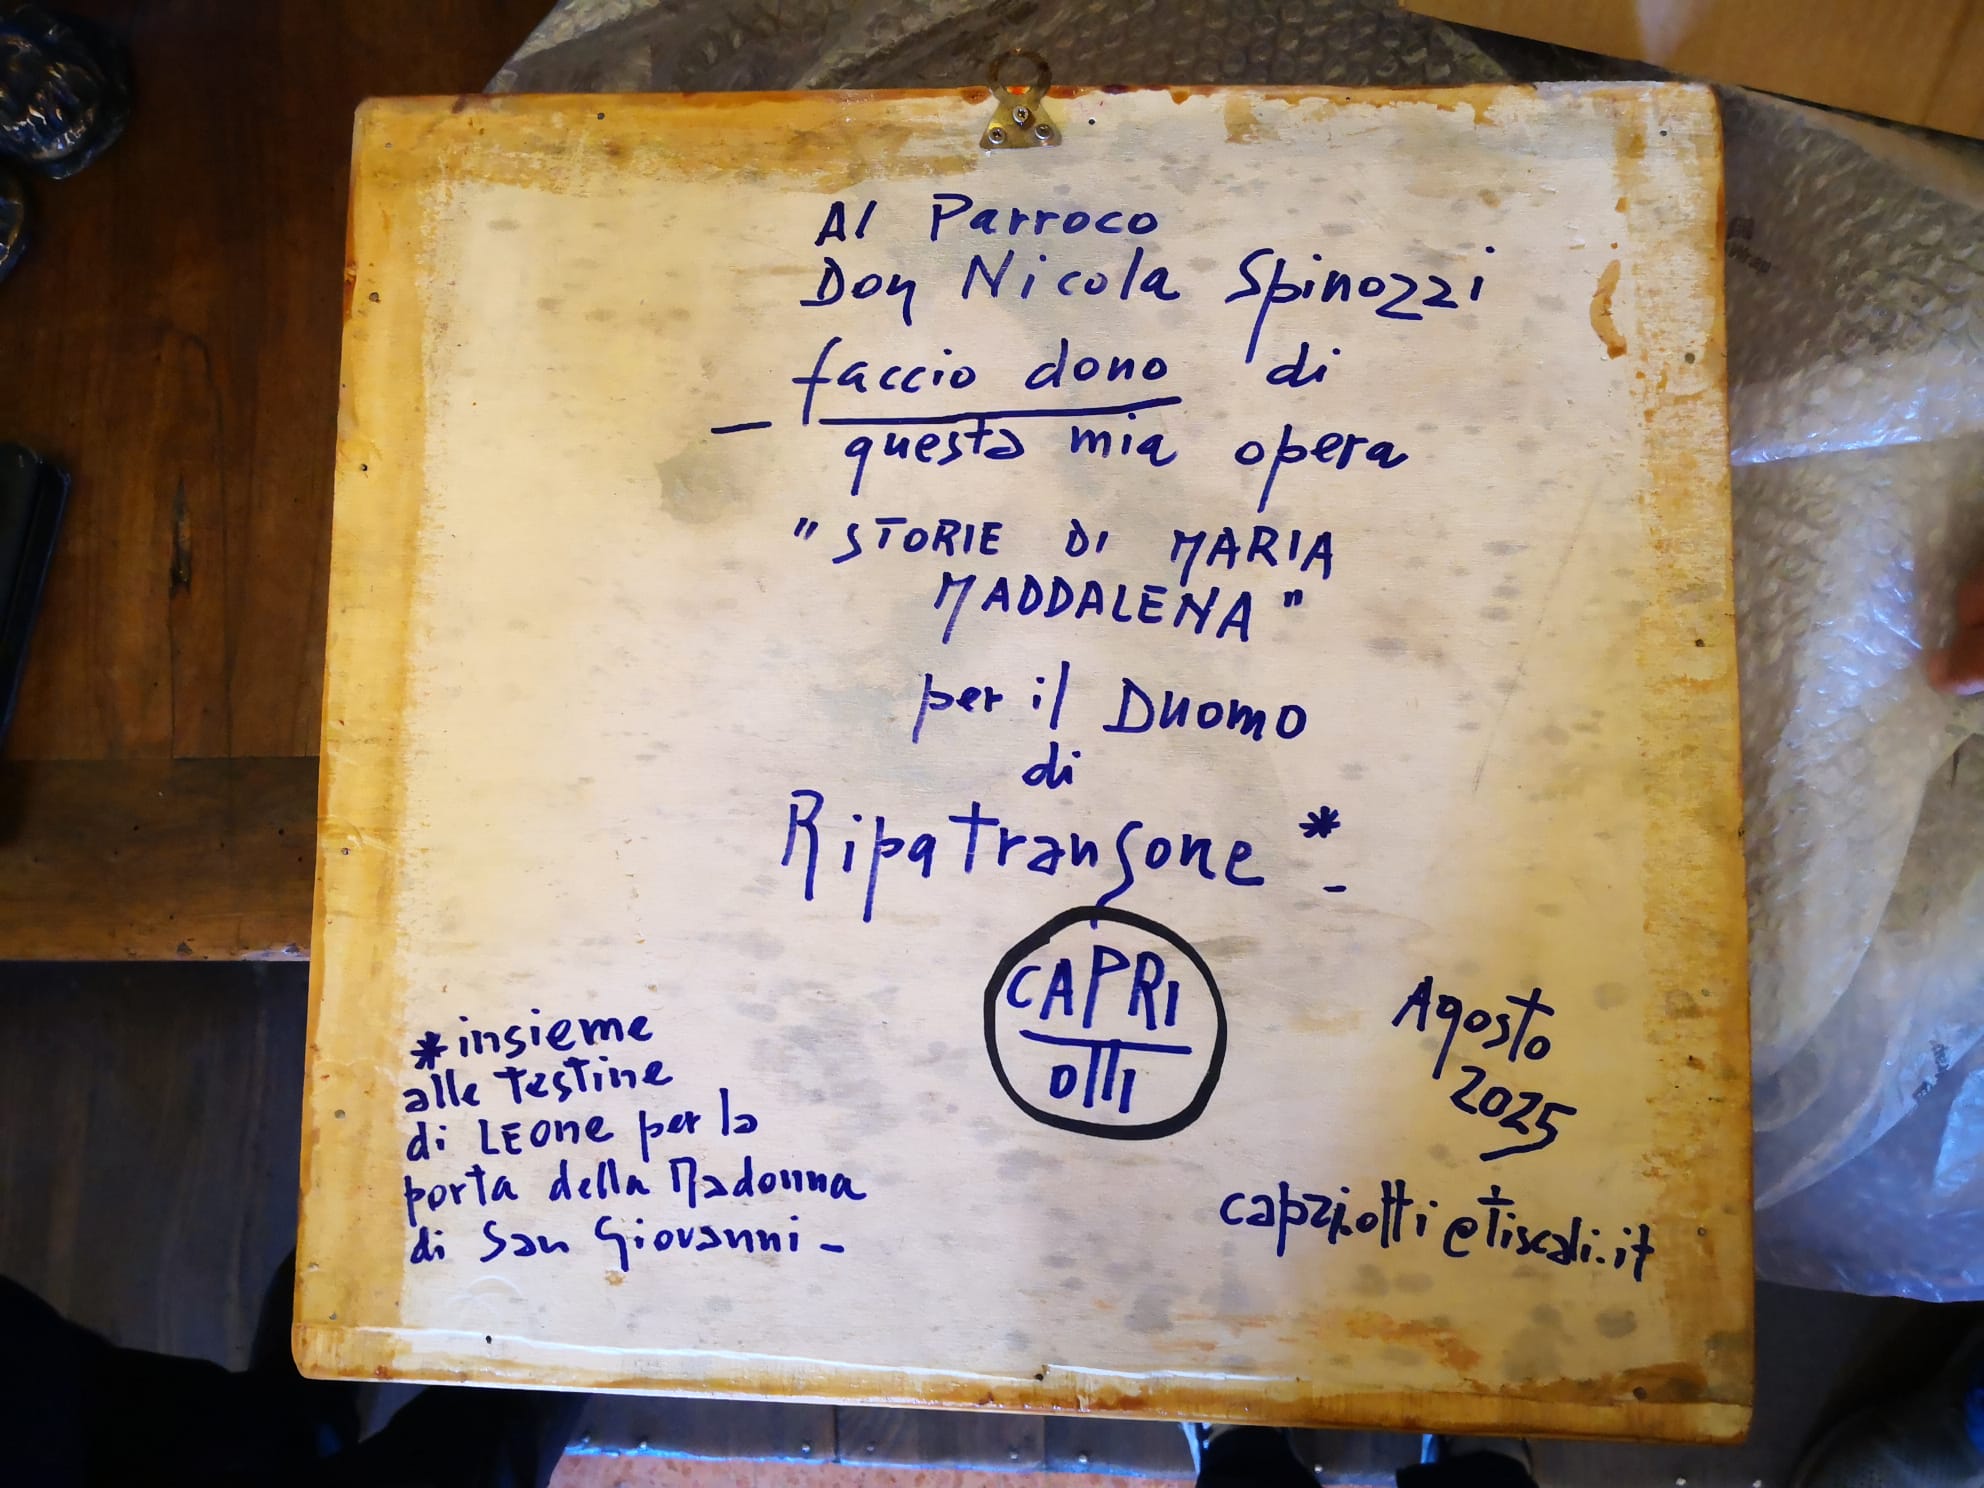 Al Parroco
Don Nicola Spinozzi
faccio dono di
questa mia opera
"STORIE DI MARIA
MADDALENA"
per il Duomo
di
Ripatransone *
CAPRI
OTTI
Agosto
2025
*insieme
alle testine
di LEONE per la
porta della Madonna
di San Giovanni -